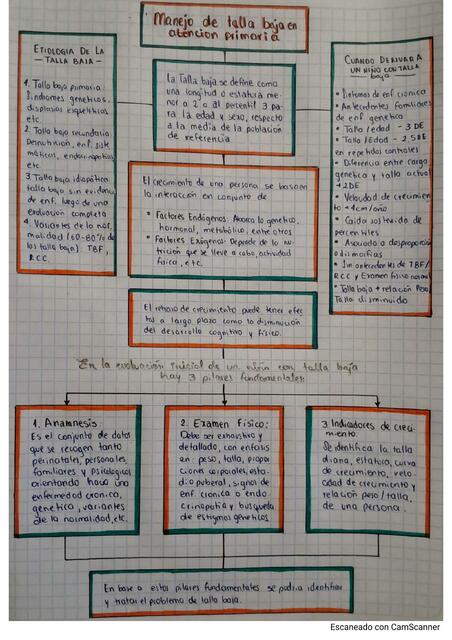 Manejo de talla baja en
atención primaria
ETIOLOGIA DE LA
— TALLA BAJA —
1. Talla baja primaria:
Sindromes geneticos,
displasias esqueléticas
etc.
2. Talla baja secundaria:
Desnutrición, enf. siste
máticas, endocrinopatías
etc.
3. Talla baja idiopática:
talla baja sin evidencia
de enf. luego de una
evaluación completa
4. Variantes de la nor
malidad (60-80% de
las talla baja) TBF,
RCC.
la Talla baja se define como
una longitud o estatura me
nor a 2 o al percentil 3 pa
ra la edad y sexo, respecto
a la media de la población
de referencia.
El crecimiento de una persona se basa en
la interacción en conjunto de
• Factores Endógenos: Abarca lo genetico,
hormonal, metabólico, entre otros
• Factores Exógenos: Depende de la nu
trición que se lleve a cabo, actividad
física, etc.
El retraso de crecimiento puede tener efec
tos a largo plazo como la disminución
del desarrollo cognitivo y físico.
CUANDO DERIVAR A
UN NIÑO CON TALLA
baja
• Sintomas de enf cronica
• Antecedentes familiares
de enf. genetica
• Talla/edad - 3 DE
• Talla/Edad - 2,5 DE
en repetidos controles
• Diferencia entre carga
genetica y talla actual
+2DE
• Velocidad de crecimien
to <4cm/año
• Caida sostenida de
percentiles
• Asociada a desproporción
o dismorfias
• Sin antecedentes de TBF/
RCC y Examen fisico normal
• Talla baja + relación Peso/
Talla disminuido
En la evaluación inicial de un niño con talla baja
hay 3 pilares fundamentales:
1. Anamnesis:
Es el conjunto de datos
que se recogen tanto
perinatales, personales,
familiares y psicológicos
orientando hacia una
enfermedad crónica,
genetica, variantes
de la normalidad, etc.
2. Examen Fisico:
Debe ser exhaustivo y
detallado, con enfasis
en: peso, talla, propor
ciones corporales, esta-
dio puberal, signos de
enf. cronica o endo
crinopatía y busqueda
de estigmas geneticos.
3 Indicadores de creci-
miento:
Se identifica la talla
diana, estatura, curva
de crecimiento, velo-
cidad de crecimiento y
relación peso/talla,
de una persona.
En base a estos pilares fundamentales se podría identificar
y tratar el problema de talla baja.
Escaneado con CamScanner